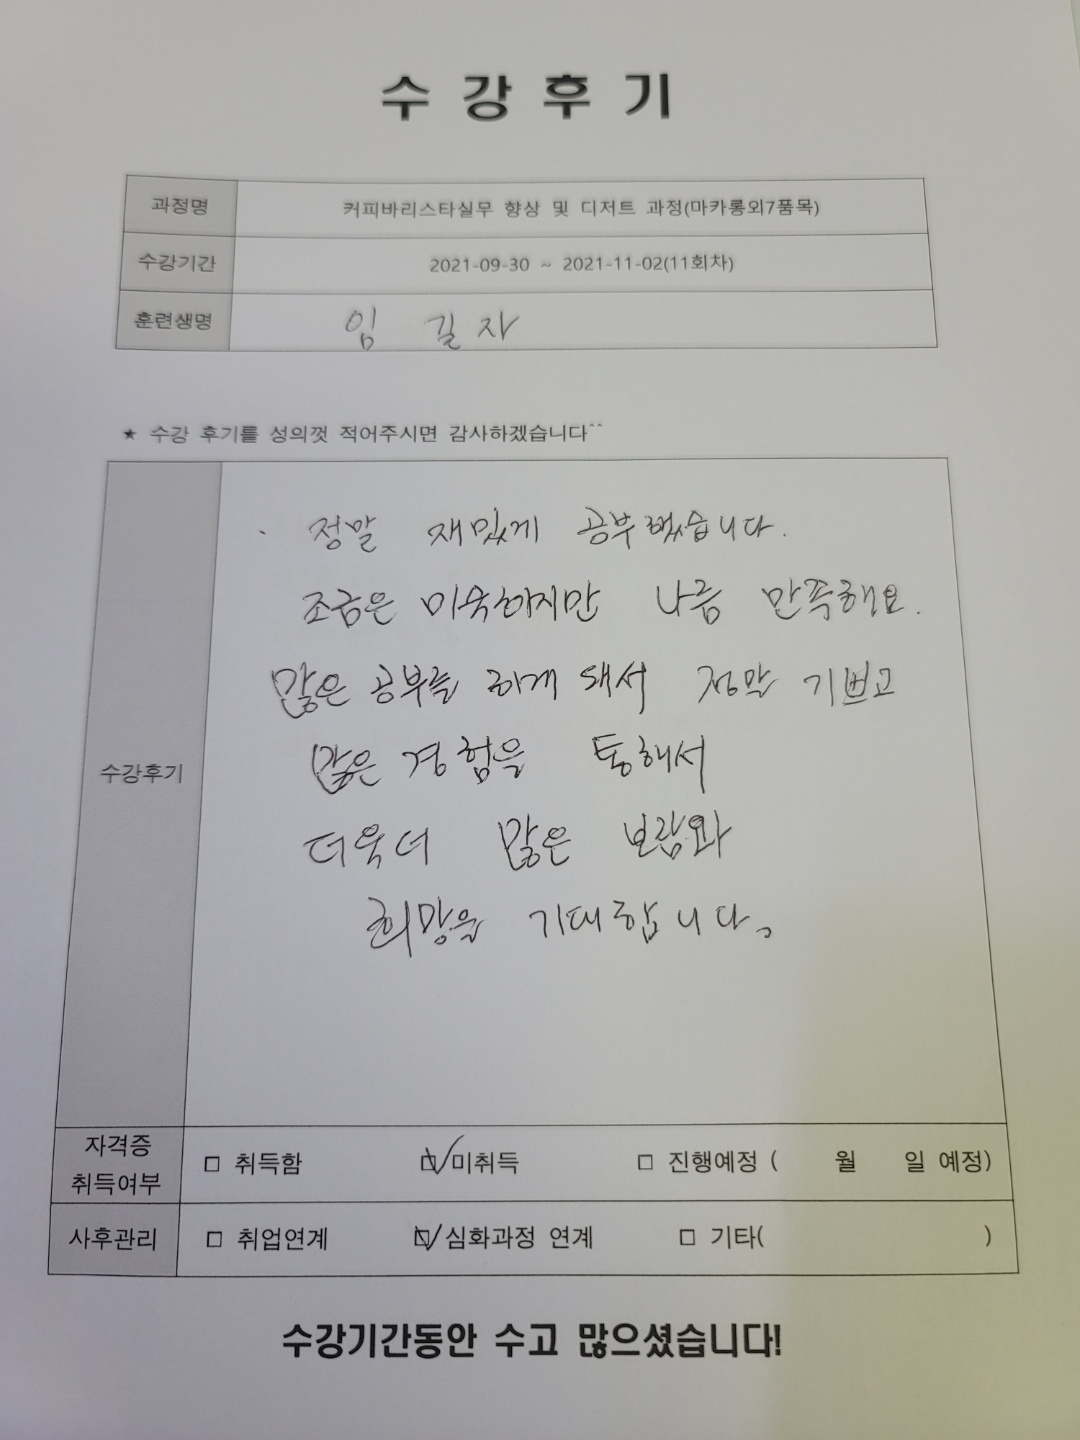 수 강 후 기
과정명 커피바리스타실무 향상 및 디저트 과정(마카롱외7품목)
수강기간 2021-09-30 ~ 2021-11-02(11회차)
훈련생명 임 길 자
★ 수강 후기를 성의껏 적어주시면 감사하겠습니다^^
수강후기
· 정말 재밌게 공부했습니다.
조금은 미숙하지만 나름 만족해요.
많은 공부를 하게 돼서 정말 기쁘고
많은 경험을 통해서
더욱더 많은 보람과
희망을 기대합니다.
자격증
취득여부
□ 취득함 ☑ 미취득 □ 진행예정 ( 월 일 예정)
사후관리 □ 취업연계 ☑ 심화과정 연계 □ 기타( )
수강기간동안 수고 많으셨습니다!